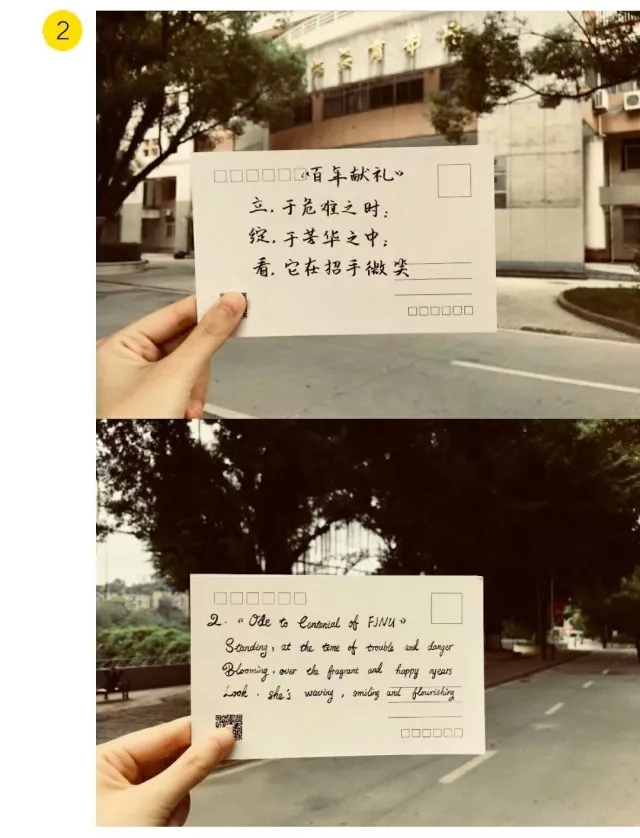 2
《百年献礼》
立.于危难之时;
绽.于芳华之中;
看.它在招手微笑
2. "Ode to Centenial of FJNU"
Standing, at the time of trouble and danger
Blooming, over the fragrant and happy years
Look. she's waving, smiling and flourishing